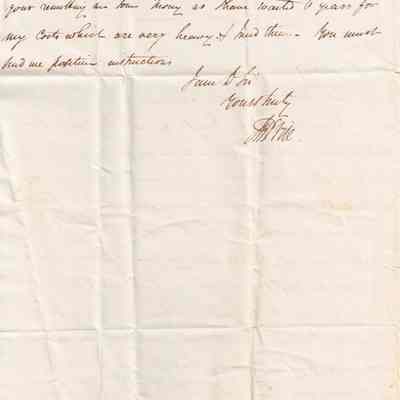 your remitting me some money as I have waited 6 years for
my Costs which are very heavy & I need them - You must
send me positive instructions
I am D Sir
Yours truly